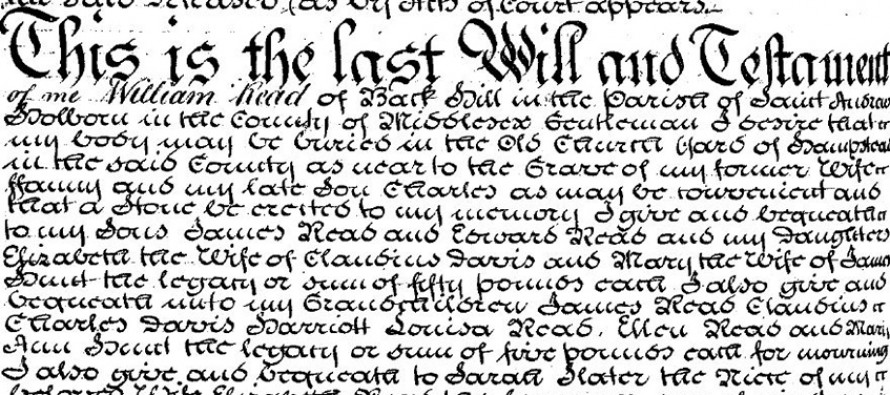 the said Deceased (as by Acts of Court appears.
This is the last Will and Testament
of me William Read of Back Hill in the Parish of Saint Andrew
Holborn in the County of Middlesex Gentleman I desire that
my body may be buried in the Old Church Yard of Hampstead
in the said County as near to the Grave of my former Wife
ffanny and my late Son Charles as may be convenient and
that a Stone be erected to my memory I give and bequeath
to my Sons James Read and Edward Read and my Daughters
Elizabeth the Wife of Claudius Davis and Mary the Wife of James
Hunt the legacy or sum of fifty pounds each I also give and
bequeath unto my Grandchildren James Read Claudius
Charles Davis Harriott Louisa Read. Ellen Read and Mary
Ann Hunt the legacy or sum of five pounds each for mourning
I also give and bequeath to Sarah Slater the Niece of my